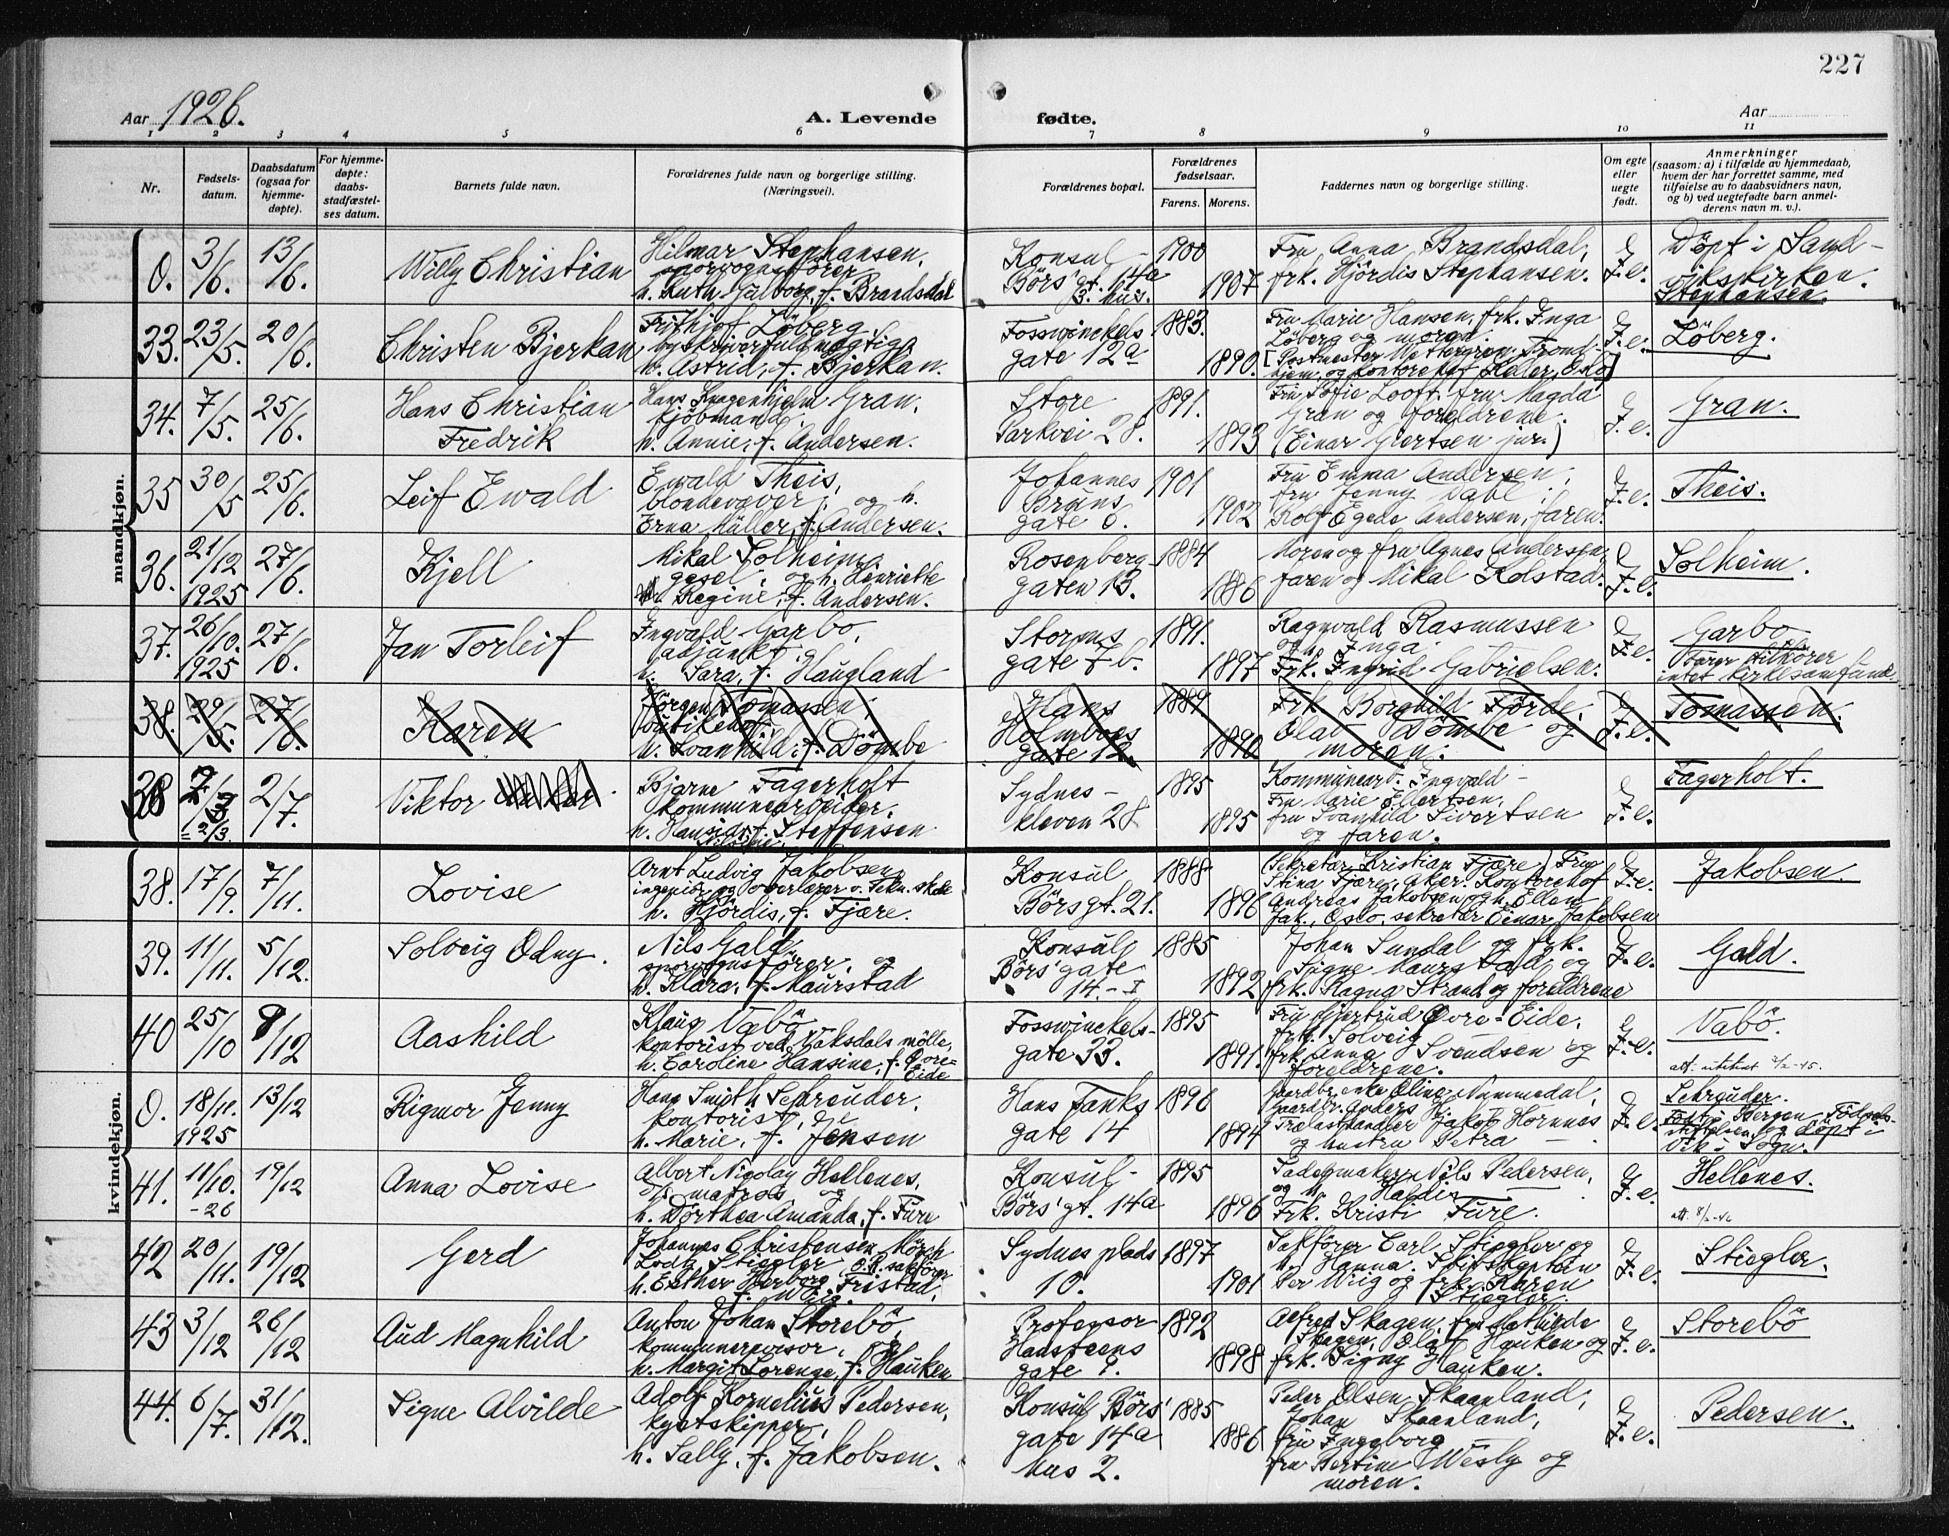 227
Aar 1926.
A. Levende fødte.
Aar
1 2 3 4 5 6 7 8 9 10 11
Nr.
Fødsels-
datum.
Daabsdatum
(ogsaa for
hjemme-
døpte).
For hjemme-
døpte:
daabs-
stadfæstel-
ses datum.
Barnets fulde navn.
Forældrenes fulde navn og borgerlige stilling.
(Næringsvei).
Forældrenes bopæl.
Forældrenes
fødselsaar.
Farens. Morens.
Faddernes navn og borgerlige stilling.
Om egte
eller
uegte
født.
Anmerkninger
(saasom: a) i tilfælde av hjemmedaab,
hvem der har forrettet samme, med
tilføielse av to daabsvidners navn,
og b) ved uegtefødte barn anmel-
derens navn m. v.).
mandkjøn.
0. 3/6. 13/6. Willy Christian
Hilmar Stephansen,
sporvognsfører
h. Ruth Gülborg, f. Brandsdal
Konsul
Börs' gt. 14a
3. hus.
1900 1907
Fru Anna Brandsdal,
frk. Hjördis Stephansen.
E
F.e.
Döpt i Sand-
vikskirken.
Stephansen.
33. 23/5. 20/6. Christen Bjerkan
Frithjof Löberg,
byskriverfuldmægtig
h. Astrid, f. Bjerkan.
Fosswinckels
gate 12a
1883. 1890.
Fru Marie Hansen, frk. Inga
Löberg og moren.
[Postmester Wettergren, Trond-
hjem, og kontorchef Heller, Oslo]
E
F.e.
Löberg.
34. 7/5. 25/6. Hans Christian
Fredrik
Hans Kragenhjelm Gran,
kjöbmand,
h. Annie, f. Andersen.
Store
Parkvei 28.
1891. 1893
Fru Sofie Looft, fru Magda
Gran og foreldrene.
(Einar Giertsen jun.)
E
F.e.
Gran.
35 30/5 25/6. Leif Ewald
Ewald Theis,
blondevæver, og h.
Erna Müller, f. Andersen.
Johannes
Bruns
gate 6.
1901 1902
Fru Emma Andersen,
fru Jenny Dahl,
Rolf Egede Andersen, faren.
E
F.e.
Theis.
36. 21/12 1925 27/6. Kjell
Mikal Solheim,
og h. Henriette
Regine, f. Andersen.
Rosenberg
gaten 13.
1884 1886
Moren og fru Agnes Andersen,
faren og Mikal Kolstad.
E
F.e.
Solheim.
37. 26/10. 1925 27/6. Jan Torleif
Ingvald Garbo,
adjunkt,
h. Sara, f. Haugland
Storms
gate 7 b.
1891. 1897
Ragnvald Rasmussen
og h. Inga.
Frk. Ingrid Gabrielsen.
E
F.e.
Garbo
tilhører
intet kirkesamfund.
38. 29/5. 27/6. Karen
Jörgen Tomassen,
h. Svanhild, f. Dömbe
Hans
Holmboes
gate 12.
1889 1890
Frk. Borghild Förde,
Olav Dömbe og
moren.
F.e.
Tomassen.
38 2/3 2/7. Viktor
Bjarne Fagerholt
kommunearbeider.
h. f. Steffensen
Sydnes-
kleven 28
1895 1895
Kommunearb. Ingvald -
Fru Marie Ellertsen,
fru Svanhild Sivertsen
og faren.
E
F.e.
Fagerholt.
kvindekjøn.
38. 17/9. 7/11. Lovise
Arnt Ludvig Jakobsen,
ingeniör og overlærer v. Tekn. skole
h. Hjördis, f. Fjære.
Konsul
Börs gt. 21.
1888 1896
(Sekretær Kristian Fjære) Fru
Stina Fjære, Aker. Kontorchef
Andreas Jakobsen og h. Ellen
Jak., Oslo, sekretær Einar Jakobsen
E
F.e.
Jakobsen.
39. 11/11. 5/12. Solveig Odny.
Nils Gald,
sporvognsförer, og
h. Klara, f. Maurstad
Konsul
Börs' gate
14. - I
1885 1892
Johan Sundal og frk.
Signe Maurstad og
frk. Ragna Strand og foreldrene
E
F.e.
Gald.
40 25/10 8/12 Aashild
Klaus Vabö
kontorist ved Vaksdals mölle,
h. Caroline Hansine, f. Övre-
Eide
Fosswinckels-
gate 33.
1895 1891.
Fru Gjertrud Övre-Eide,
frk. Solveig
frk. Anna Svendsen og
foreldrene.
E
F.e.
Vabö.
att. utstedt 7/2-45.
0. 18/11. 1925 13/12 Rigmor Jenny
Hans Smith Schreuder,
kontorist, og
h. Marie, f. Jensen
Hans Tanks
gate 14
1896 1894
Gaardbr. enke Oline Nummedal,
gaardbr. Anders
Trelasthandler Jakob Hornnes
og hustru Petra -
E
F.e.
Schreuder.
Född i Bergen Födsels-
stiftelsen og döpt i
Vik i Sogn.
41. 11/10. -26 19/12 Anna Lovise
Albert Nicolay Hellenes,
matros og
h. Dorthea Amanda, f. Füre
Konsul-
Börs' gt. 14a
1895 1896
Nils Pedersen,
og h. Haldis
Frk. Kristi Füre.
E
F.e.
Hellenes.
att. 8/2-46
42 20/11. 19/12 Gerd
Johannes Christensen Mörch
Lodtz Stiegler, o.r. sakförer
h. Esther Herborg Fristad,
f. Wiig.
Sydnes plads
10.
1897 1901
Sakförer Carl Stiegler og
h. Hanna. Skibskaptein
Per Wiig og frk. Karen
Stiegler.
E
F.e.
Stiegler.
43 3/12 26/12 Aud Magnhild
Anton Johan Storebö
kommunerevisor, og
h. Margit Lorenze, f. Hauken
Professor
Hansteens
gate 9.
1892 1898
Alfred Skagen, fru Mathilde
Skagen, Olaf Hauken og
frk. Signy Hauken.
E
F.e.
Storebö
44. 6/7. 31/12. Signe Alvilde
Adolf Kornelius Pedersen,
kystskipper,
h. Sally, f. Jakobsen.
Konsul Börs'
gate 14a
hus 2.
1885 1886
Peder Olsen Skaanland,
Johan Skaanland,
fru Ingeborg
fru Bertine Wesly og
moren.
E
F.e.
Pedersen.